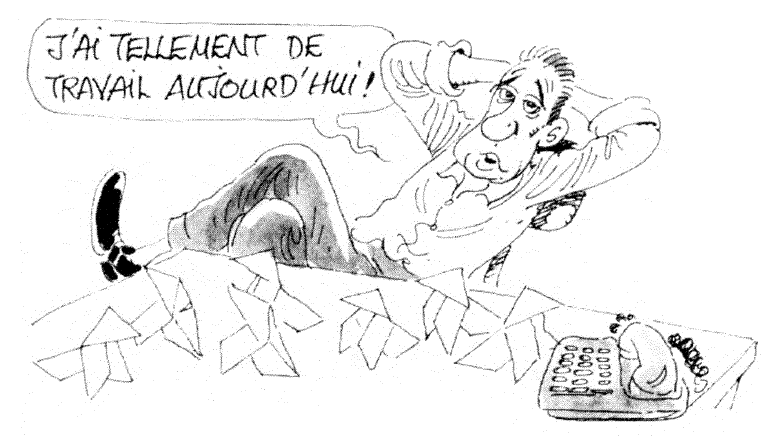 J'AI TELLEMENT DE
TRAVAIL AUJOURD'HUI!